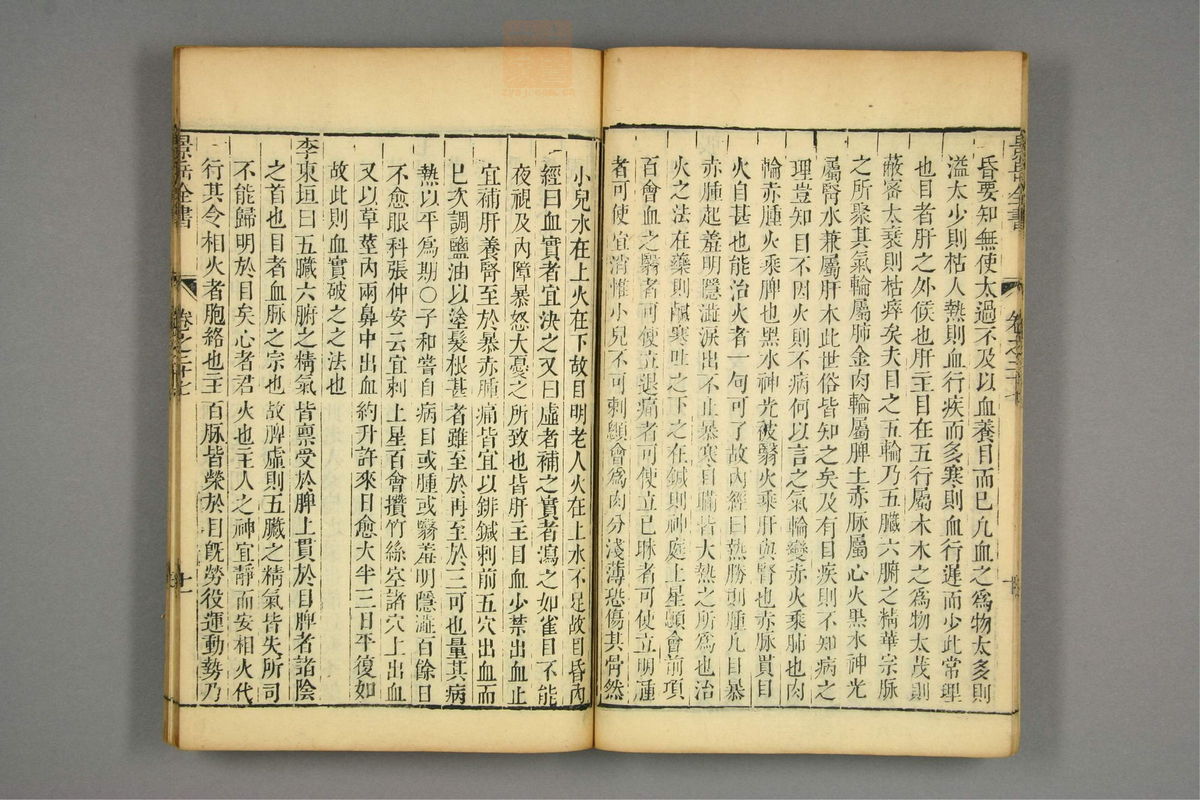 昏要知無使太過不及以血養目而已凡血之為物太多則
溢太少則枯人熱則血行疾而多寒則血行遲而少此常理
也目者肝之外候也肝主目在五行屬木木之為物太茂則
蔽密太衰則枯瘁矣夫目之五輪乃五臟六腑之精華宗脉
之所聚其氣輪屬肺金肉輪屬脾土赤脉屬心火黑水神光
屬腎水兼屬肝木此世俗皆知之矣及有目疾則不知病之
理豈知目不因火則不病何以言之氣輪變赤火乘肺也肉
輪赤腫火乘脾也黑水神光被翳火乘肝與腎也赤脉貫目
火自甚也能治火者一句可了故內經曰熱勝則腫凡目暴
赤腫起羞明隱澁淚出不止暴寒目瞞皆大熱之所為也治
火之法在藥則鹹寒吐之下之在鍼則神庭上星顖會前項
百會血之翳者可使立退痛者可使立已眯者可使立明腫
者可使立消惟小兒不可刺顖會為肉分淺薄恐傷其骨然
小兒水在上火在下故目明老人火在上水不足故目昏內
經曰血實者宜決之又曰虛者補之實者瀉之如雀目不能
夜視及內障暴怒大憂之所致也皆肝主目血少禁出血止
宜補肝養腎至於暴赤腫痛皆宜以鍼刺前五穴出血而
已次調鹽油以塗髮根甚者雖至於再至於三可也量其病
熱以平為期〇子和嘗自病目或腫或翳羞明隱澁百餘日
不愈眼科張仲安云宜刺上星百會攢竹絲空諸穴上出血
又以草莖內兩鼻中出血約升許來日愈大半三日平復如
故此則血實破之之法也
李東垣曰五臟六腑之精氣皆禀受於脾上貫於目脾者諸陰
之首也目者血脉之宗也故脾虛則五臟之精氣皆失所司
不能歸明於目矣心者君火也主人之神宜靜而安相火代
行其令相火者胞絡也主百脉皆榮於目既勞役運動勢乃
景岳全書
卷之二十七
十一
景岳全書
卷之二十七
十